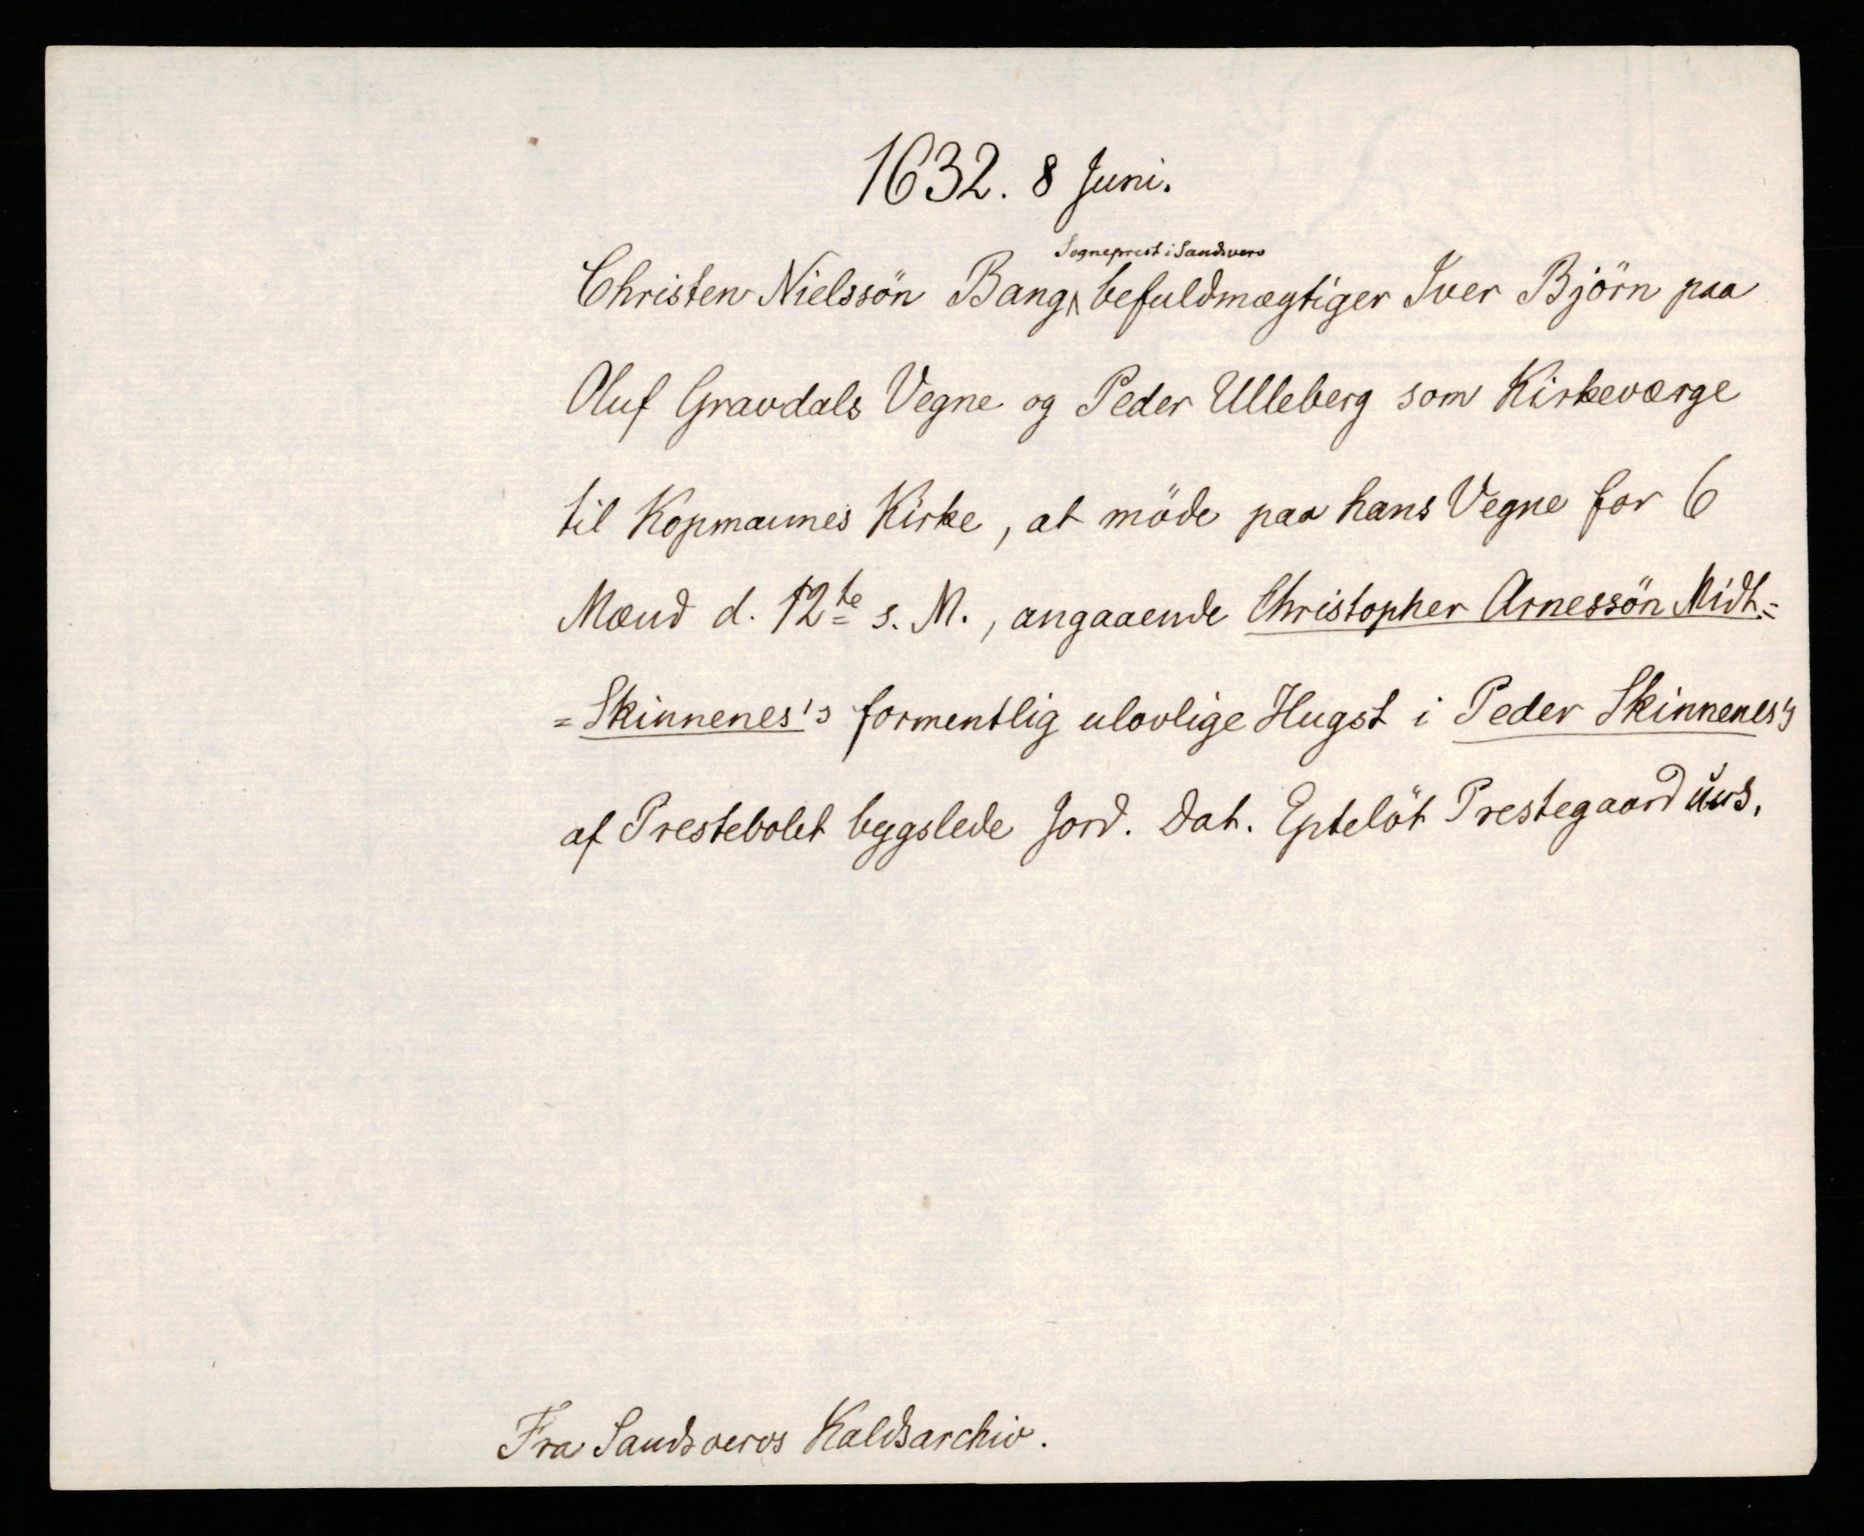 1632. 8 Juni.
Sogneprest i Sandsvero
Christen Nielssön Bang ∧ befuldmægtiger Iver Björn paa
Oluf Gravdals Vegne og Peder Ulleberg som Kirkeværge
til Kopmannes Kirke, at möde paa hans Vegne for 6
Mænd d. 12te s. M., angaaende Christopher Arnessön Midt-
=Skinnenes's formentlig ulovlige Hugst i Peder Skinnenes's
af Prestebolet bygslede Jord. Dat. Eptelöt Prestegaard
Fra Sandsveros Kaldsarchiv.